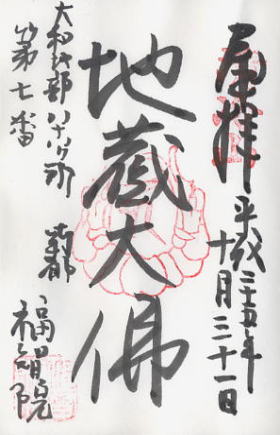 奉拝 平成二十五年
十月三十一日
地蔵大佛
大和北部八十八ヶ所
第七番
南都 福智院